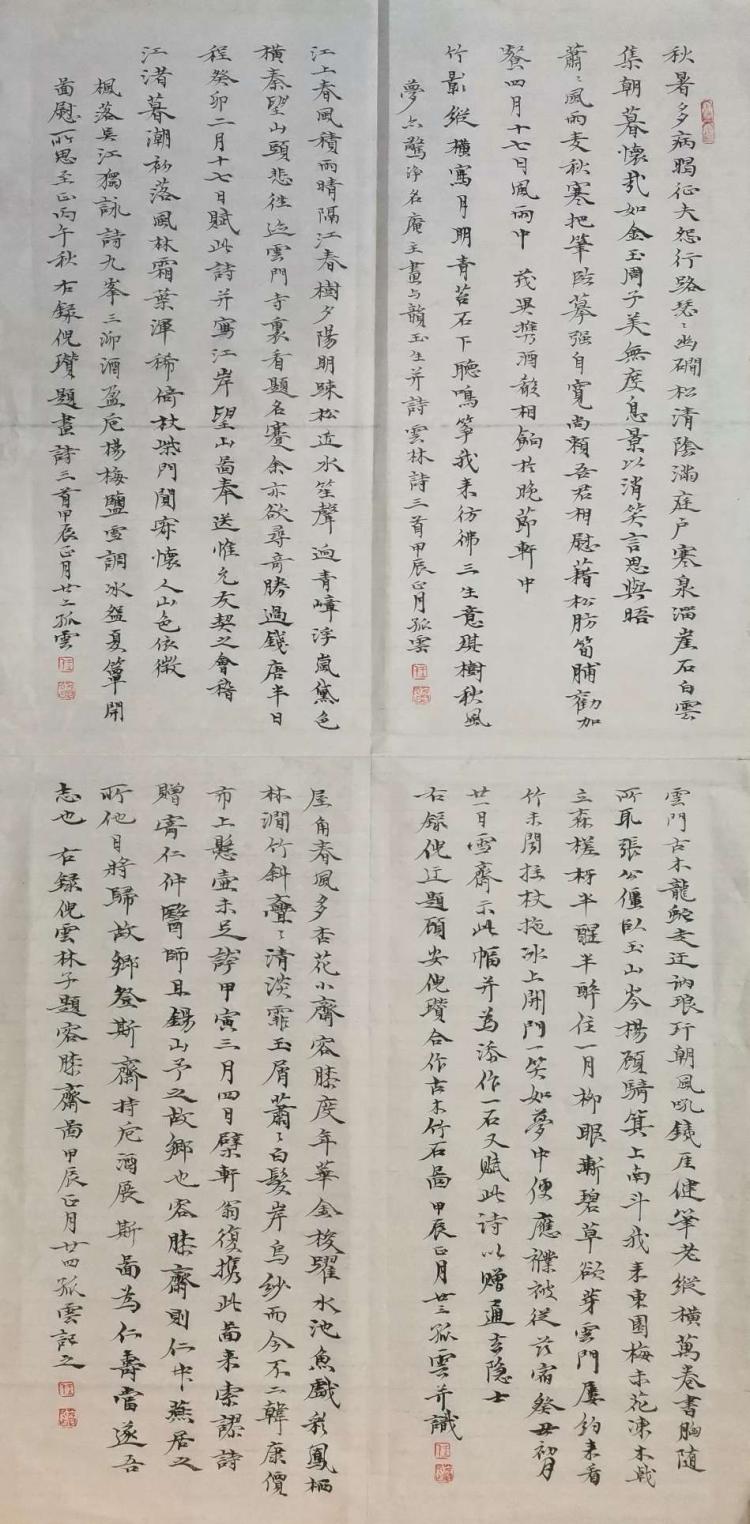 秋暑多病暍征夫怨行路瑟瑟幽磵松清陰滿庭户寒泉溜崖石白雲
集朝暮懷哉如金玉周子美無度息景以消笑言思與晤
蕭蕭風雨麦秋寒把筆臨摹强自寬尚賴吾君相慰藉松肪筍脯勸加
餐四月十七日風雨中茂異携酒殽相餉於晚節軒中
竹影縱橫寫月明青苔石下聽鳴筝我来彷彿三生意琪樹秋風
夢亦驚浄名庵主畫与韻玉生并詩雲林詩三首甲辰正月孤雲
江上春風積雨晴隔江春樹夕陽明疎松近水笙聲迥青嶂浮嵐黛色
横秦望山頭悲往迹雲門寺裏看題名蹇余亦欲尋奇勝過錢唐半日
程癸卯二月十七日賦此詩并寫江岸望山啚奉送惟允友契之會稽
江渚暮潮初落風林霜葉渾稀倚杖柴門闃寂懷人山色依微
楓落吳江獨詠詩九峯三泖酒盈卮楊梅盬雪調冰盌夏簟開
啚慰所思至正丙午秋右録倪瓚題畫詩三首甲辰正月廿二孤雲
雲門古木龍蛇走迂訥琅玕朝風吼鐵厓健筆老縱横萬卷書胸随
所取張公僵臥玉山岑楊顧騎箕上南斗我来東園梅未花涷木戟
立森槎枒半醒半醉住一月柳眼漸碧草欲芽雲門屢約来看
竹未閒拄杖拖冰上開門一笑如夢中便應襆被從茲宿癸丑初月
廿一日雪齋示此幅并為添作一石又賦此詩以贈通玄隐士
右録倪迂題顧安倪瓚合作古木竹石啚甲辰正月廿三孤雲并識
屋角春風多杏花小齋容膝度年華金梭躍水池魚戲彩鳳栖
林澗竹斜亹亹清淡霏玉屑蕭蕭白髮岸烏紗而今不二韓康價
市上懸壺未足誇甲寅三月四日檗軒翁復携此啚来索謬詩
贈寄仁仲醫師且錫山予之故鄉也容膝齋則仁中燕居之
所他日將歸故鄉登斯齋持卮酒展斯啚為仁壽當遂吾
志也右録倪雲林子題容膝齋啚甲辰正月廿四孤雲記之